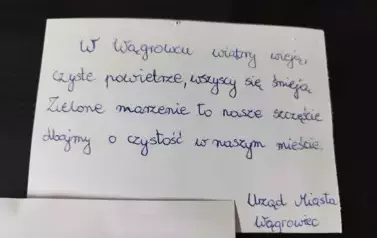 W Wągrowcu wiatry wieją,
czyste powietrze, wszyscy się śmieją
Zielone marzenie to nasze szczęście
dbajmy o czystość w naszym mieście
Urząd Miasta
Wągrowiec